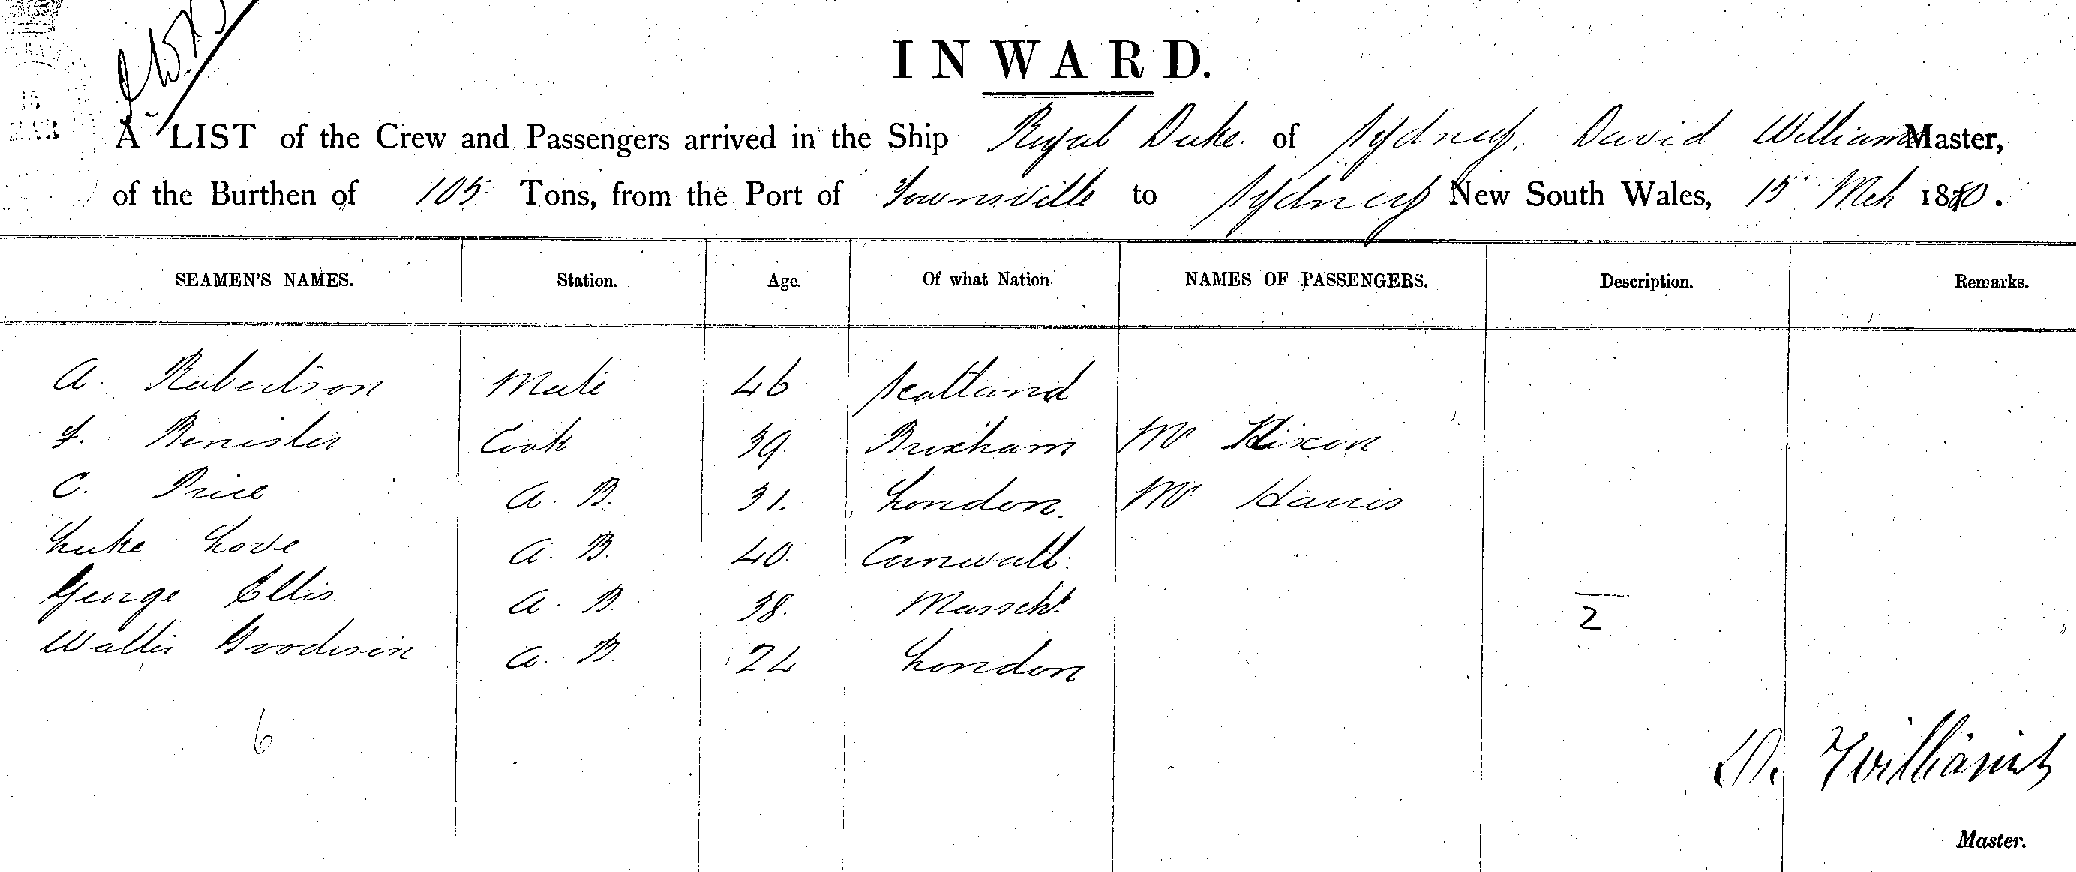 INWARD.
A LIST of the Crew and Passengers arrived in the Ship Royal Duke of Sydney, David Williams Master,
of the Burthen of 105 Tons, from the Port of Townsville to Sydney New South Wales, 15 Mch 1880.
SEAMEN'S NAMES. Station. Age. Of what Nation. NAMES OF PASSENGERS. Description. Remarks.
A. Robertson Mate 46 Scotland
F. Binister Cook 39 Brixham Mr Hixon
C. Price A. B. 31. London. Mr Harris
Luke Love A. B. 40. Cornwall.
George Ellis A. B. 38.
2
Walter A. B. 24 London
6
D. Williams
Master.